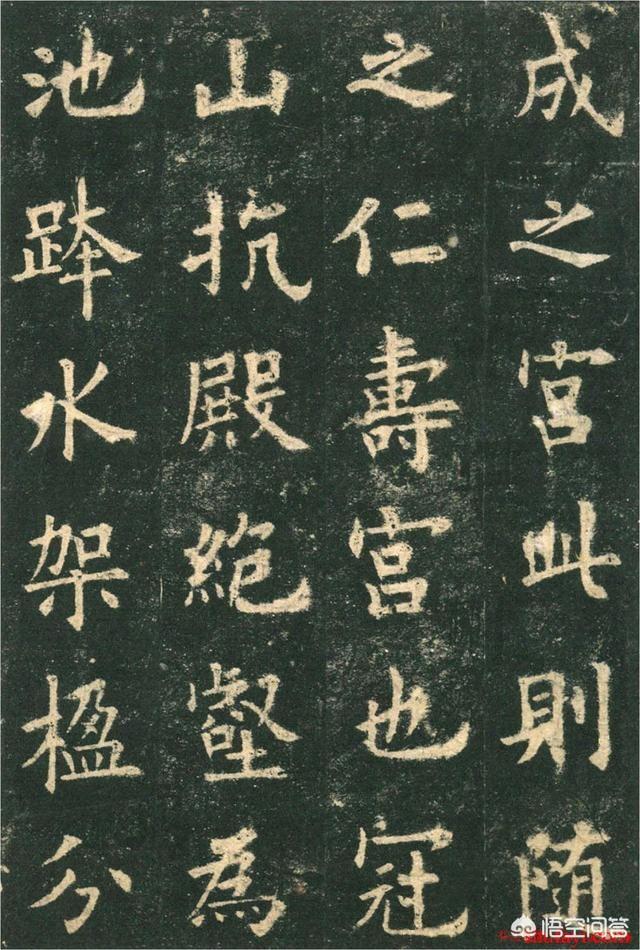 成之宫此則随
之仁壽宫也冠
山抗殿絕壑為
池跨水架楹分
悟空问答